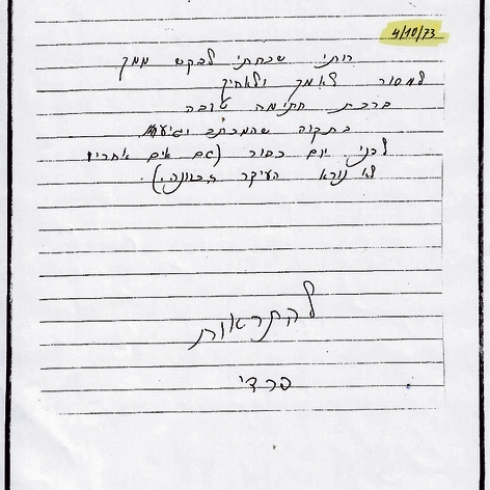 4/10/73
רותי שכחתי לבקש ממך
למסור לאמך ולאחיך
ברכת חתימה טובה
בתקוה שהמכתב יגיע
לפני יום כפור (גם אם אחריו
לא נורא העיקר הכוונה).
להתראות
פרדי